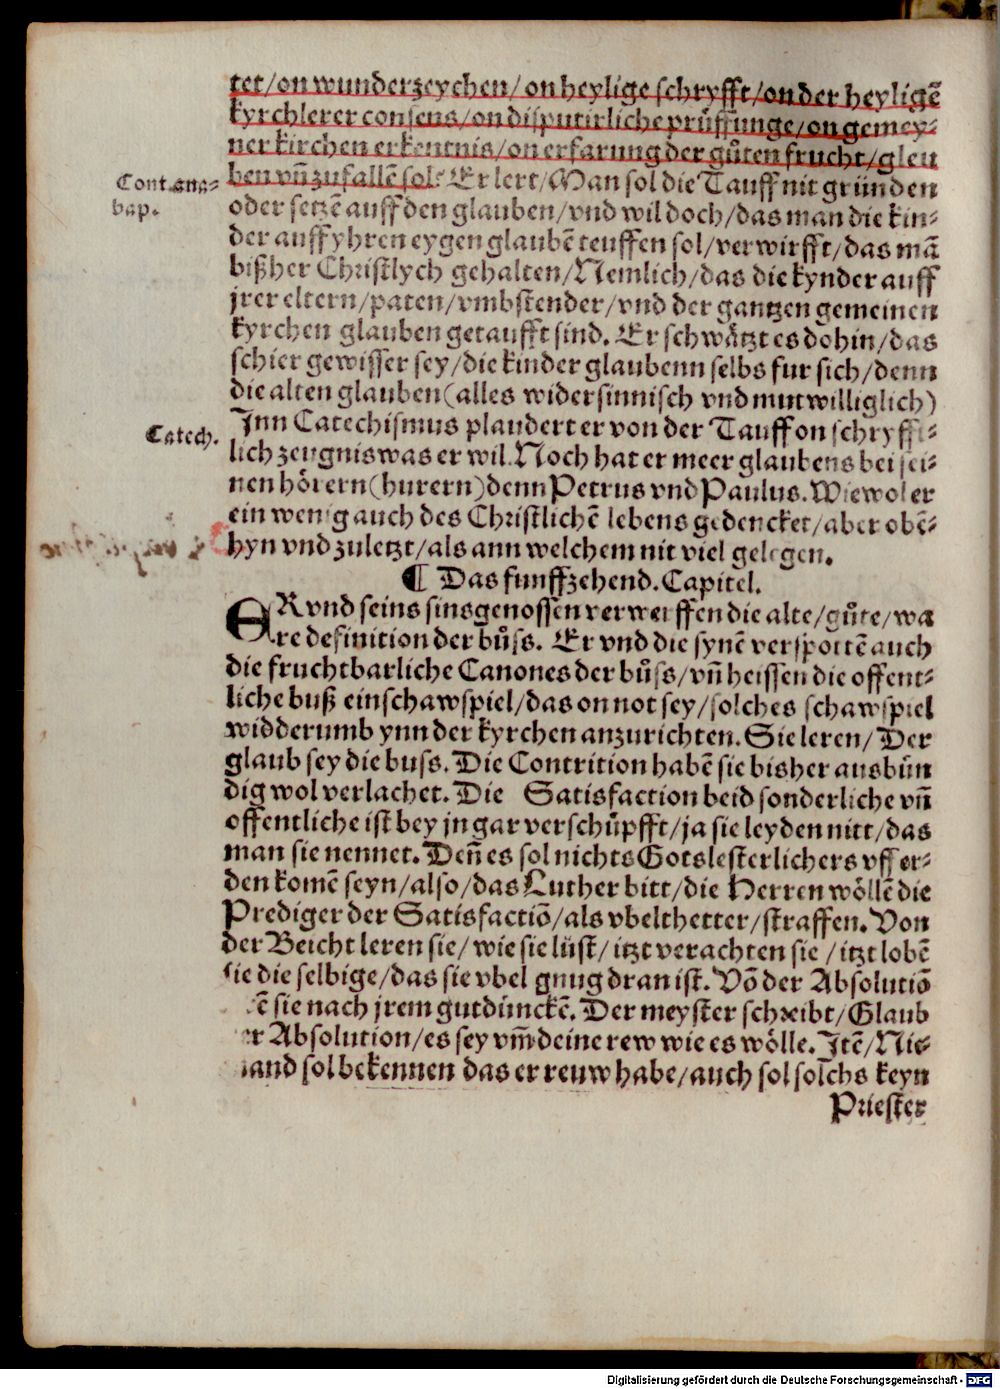 tet/on wunderzeychen/on heylige schryfft/on der heyligē
kyrchlerer consens/on disputirliche průffunge/on gemey-
ner kirchen erkentnis/on erfarung der gůten frucht/gleu
Cont. ana-
bap.
ben vñ zufallē sol. Er lert/Man sol die Tauff nit gründen
oder setzē auff den glauben/vnd wil doch/das man die kin-
der auff yhren eygen glaubē teuffen sol/verwirfft/das mā
bißher Christlych gehalten/Nemlich/das die kynder auff
jrer eltern/paten/vmbstender/vnd der gantzen gemeinen
kyrchen glauben getaufft sind. Er schwåtzt es dohin/das
schier gewisser sey/die kinder glaubenn selbs fur sich/denn
die alten glauben(alles widersinnisch vnd mutwilliglich)
Catech.
Inn Catechismus plaudert er von der Tauff on schryfft-
lich zeugnis was er wil. Noch hat er meer glaubens bei sei-
nen hörern(hurern)denn Petrus vnd Paulus. Wiewol er
ein wenig auch des Christlichē lebens gedencket/aber obē-
hyn vnd zuletzt/als ann welchem nit viel gelegen.
¶ Das funffzehend. Capitel.
ER vnd seins sinsgenossen verwerffen die alte/gůte/wa
re definition der bůss. Er vnd die synē verspottē auch
die fruchtbarliche Canones der bůss/vñ heissen die offent-
liche buß ein schawspiel/das on not sey/solches schawspiel
widderumb ynn der kyrchen anzurichten. Sie leren/Der
glaub sey die buss. Die Contrition habē sie bisher ausbün
dig wol verlachet. Die Satisfaction beid sonderliche vñ
offentliche ist bey jn gar verschüpfft/ja sie leyden nitt/das
man sie nennet. Deñ es sol nichts Gotslesterlichers vff er-
den komē seyn/also/das Luther bitt/die Herren wöllē die
Prediger der Satisfactiō/als vbelthetter/straffen. Von
der Beicht leren sie/wie sie lüst/itzt verachten sie/itzt lobē
sie die selbige/das sie vbel gnug dran ist. Vō der Absolutiō
sie nach jrem gutdünckē. Der meyster schreibt/Glaub
r Absolution/es sey vm̄ deine rew wie es wölle. Itē/Nie-
mand sol bekennen das er reuw habe/auch sol solchs keyn
Priester
Digitalisierung gefördert durch die Deutsche Forschungsgemeinschaft - DFG